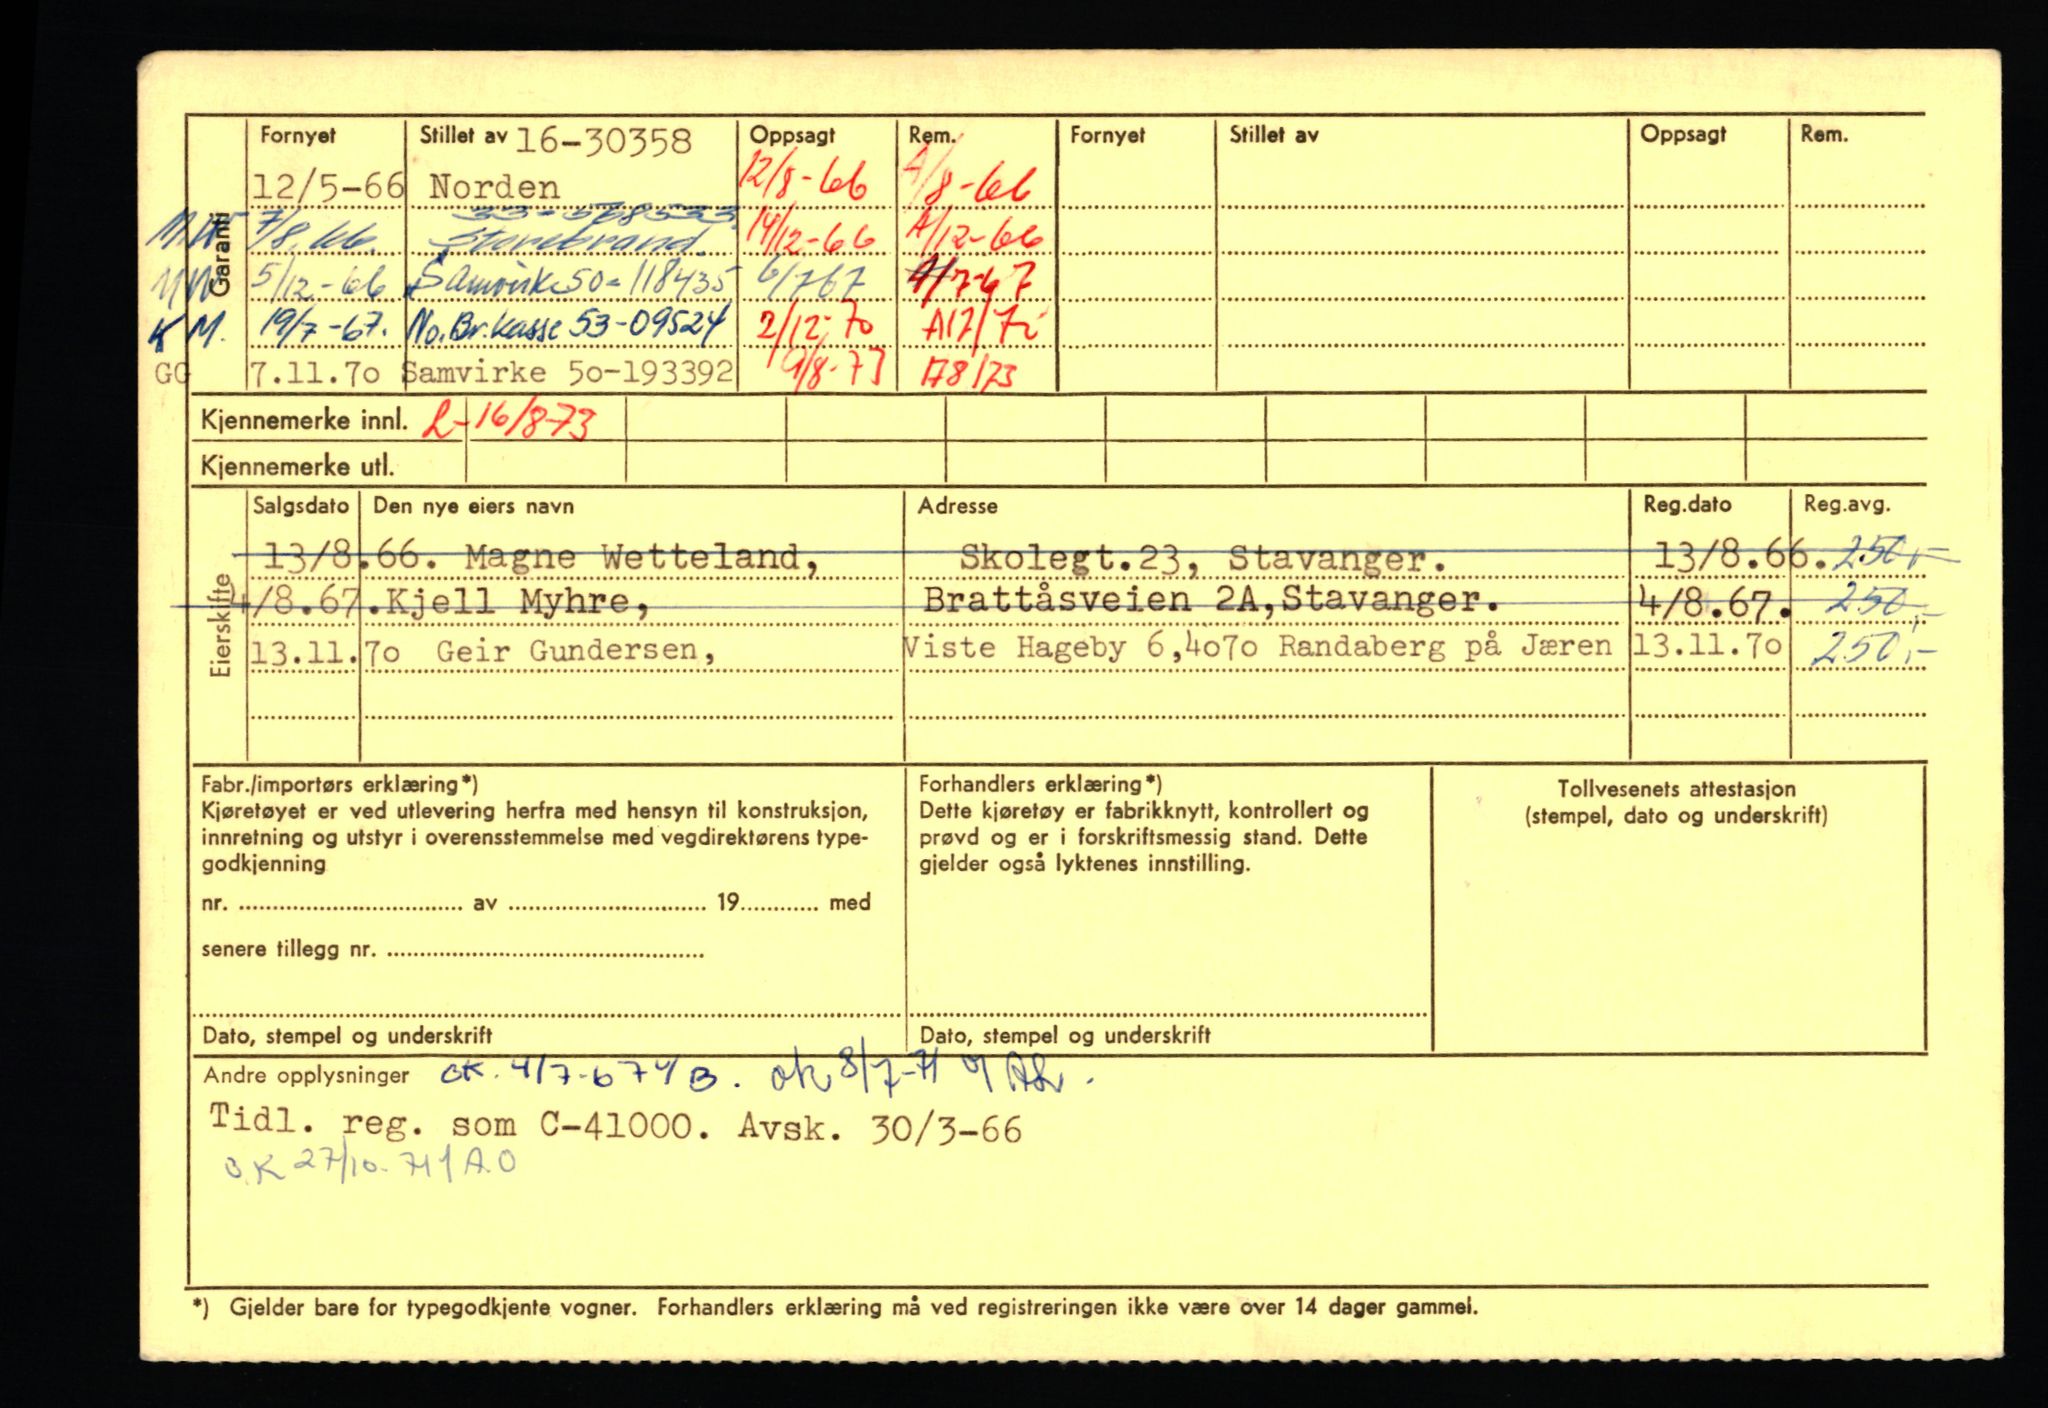 Garanti
Fornyet Stillet av 16-30358 Oppsagt Rem. Fornyet Stillet av Oppsagt Rem.
12/5-66 Norden 12/8-66 A/8-66
33-568533
7/8.66. Storebrand 14/12-66 A/12-66
5/12-66 Samvirke 50-118435 6/7 67 A/7-67
K M. 19/7-67. No.Br.kasse 53-09524 2/12-70
GG 7.11.7o Samvirke 5o-193392 9/8-73 178/73
Kjennemerke innl. L-16/8-73
Kjennemerke utl.
Eierskifte
Salgsdato Den nye eiers navn Adresse Reg.dato Reg.avg.
13/8.66. Magne Wetteland, Skolegt.23, Stavanger. 13/8.66. 250,-
4/8.67.Kjell Myhre, Brattåsveien 2A,Stavanger. 4/8.67. 250,-
13.11.7o Geir Gundersen, Viste Hageby 6,4o7o Randaberg på Jæren 13.11.7o 250,-
Fabr./importørs erklæring*)
Kjøretøyet er ved utlevering herfra med hensyn til konstruksjon,
innretning og utstyr i overensstemmelse med vegdirektørens type-
godkjenning
nr. av 19 med
senere tillegg nr.
Dato, stempel og underskrift
Forhandlers erklæring*)
Dette kjøretøy er fabrikknytt, kontrollert og
prøvd og er i forskriftsmessig stand. Dette
gjelder også lyktenes innstilling.
Dato, stempel og underskrift
Tollvesenets attestasjon
(stempel, dato og underskrift)
Andre opplysninger OK. 4/7-67 B. ok 8/7-71
Tidl. reg. som C-41000. Avsk. 30/3-66
O.K 27/10-71 / A.O
*) Gjelder bare for typegodkjente vogner. Forhandlers erklæring må ved registreringen ikke være over 14 dager gammel.